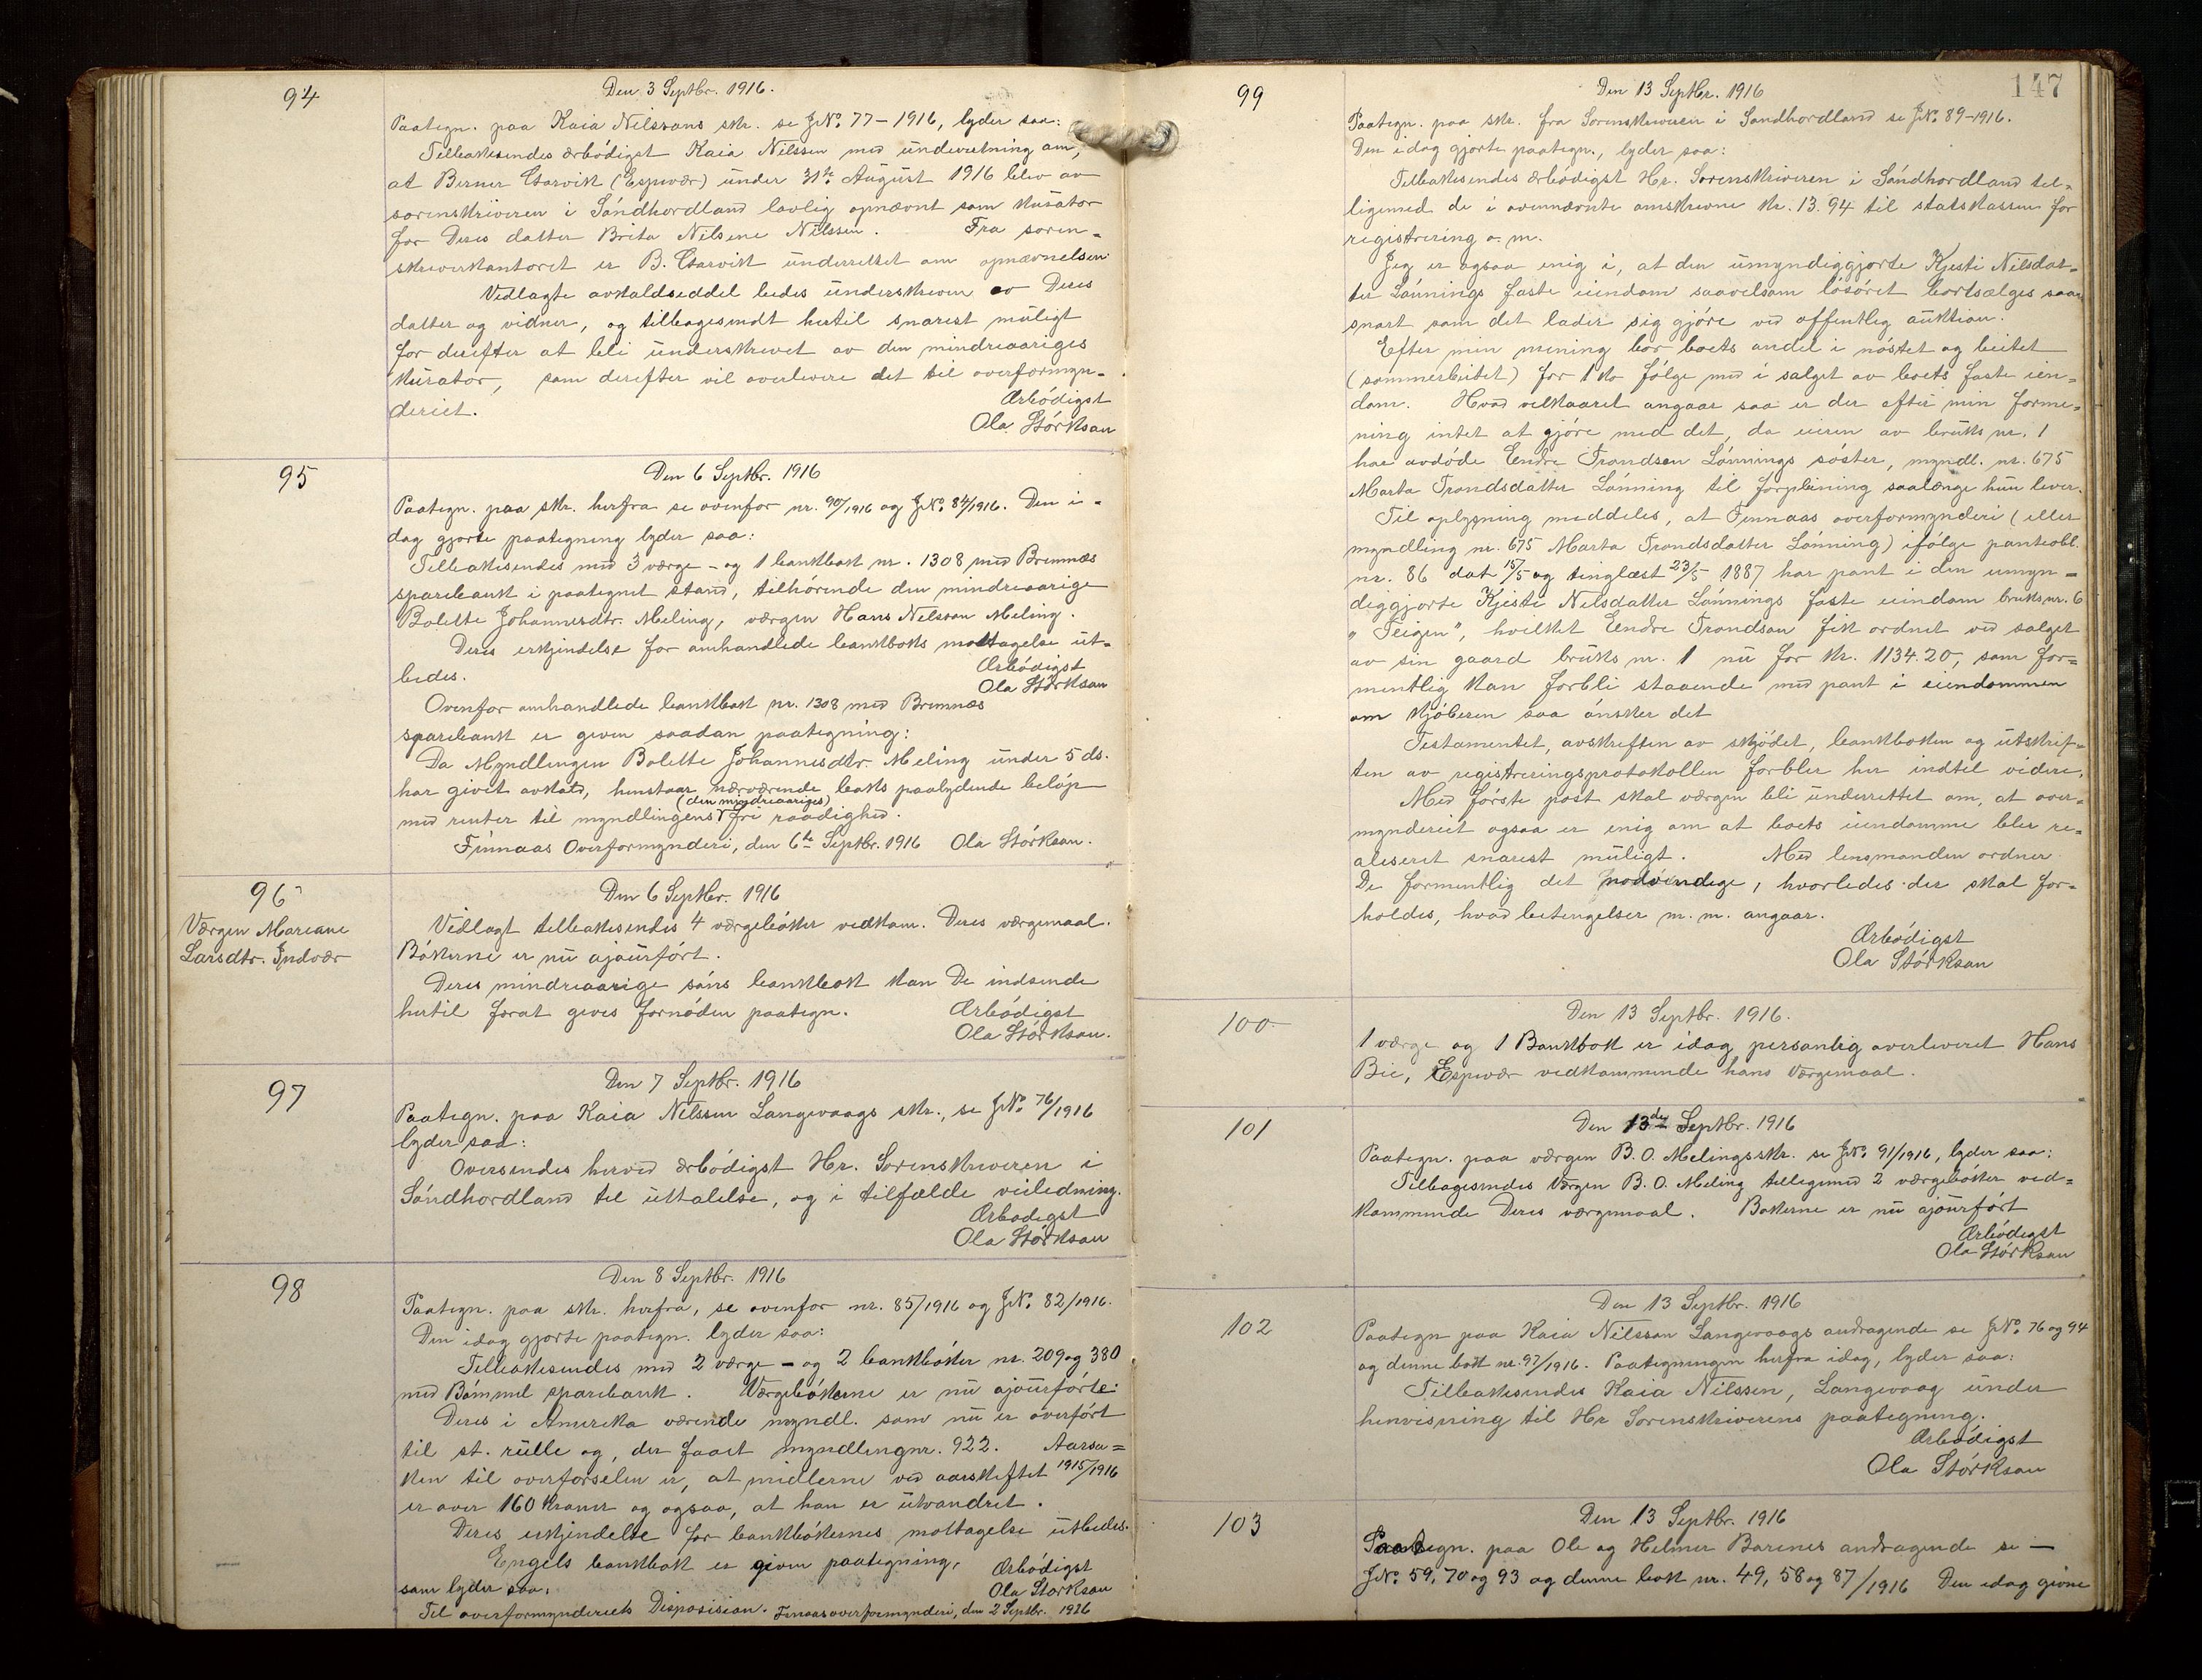 94
Den 3 Septbr. 1916.
Paategn. paa Kaia Nilssons skr. se JNo. 77-1916, lyder saa:
Tilbakesendes ærbödigst Kaia Nilssen med underretning am,
at Berner Økarvik (Espevær) under 31te August 1916 blev av
sorenskriveren i Söndhordland lovlig opnævnt som kurator
for Deres datter Brita Nilsine Nilssen. Fra soren-
skriverkontoret er B. underrettet om opnævnelsen
Vedlagte avkaldseddel bedes underskreven av Deres
datter og vidner, og tilbagesendt hertil snarest muligt
for derefter at bli underskrevet av den mindreaariges
kurator, som derefter vil overlevere det til overformyn-
deriet. Ærbödigst
Ola Störkson
95
Den 6 Septbr. 1916
Paategn. paa skr. herfra se ovenfor nr. 90/1916 og JNo. 84/1916. Den i-
dag gjorte paategning lyder saa:
Tilbakesendes med 3 værge- og 1 bankbok nr. 1308 med Bremnæs
sparebank i paategnet stand, tilhörende den mindreaarige
Bolette Johannesdtr. Meling, værgen Hans Nelson Meling.
Deres erkjendelse for omhandlede bankboks mottagelse ut-
bedes. Ærbödigst
Ola Störkson
Ovenfor omhandlede bankbok nr. 1308 med Bremnæs
sparebank er given saadan paategning:
Da Myndlingen Bolette Johannesdtr. Meling under 5 ds.
har givet avkald, henstaar nærværende boks paalydende belöp
med renter til myndlingens (den mindreaariges) fri raadighed.
Finnaas Overformynderi, den 6te Septbr. 1916 Ola Störkson.
96
Værgen Mariane
Larsdtr. Indvær
Den 6 Septbr. 1916
Vedlagt tilbakesendes 4 værgeböker vedkom. Deres værgemaal.
Bökerne er nu ajourfört.
Deres mindreaarige söns bankbok kan De indsende
hertil forat gives fornöden paategn. Ærbödigst
Ola Störkson.
97
Den 7 Septbr. 1916
Paategn. paa Kaia Nilssen Langevaags skr., se JNo. 76/1916
lyder saa:
Oversendes herved ærbödigst Hr. Sorenskriveren i
Söndhordland til uttalelse, og i tilfælde veiledning.
Ærbödigst
Ola Störkson
98
Den 8 Septbr. 1916
Paategn. paa skr. herfra, se ovenfor nr. 85/1916 og JNo. 82/1916.
Den idag gjorte paategn. lyder saa:
Tilbakesendes med 2 værge- og 2 bankböker nr. 209 og 380
med Bömmel sparebank. Værgebökerne er nu ajourförte:
Deres i Amerika værende myndl. som nu er overfört
til st. rulle og, der faaet myndlingnr. 922. Aarsa-
ken til overförselen er, at midlerne ved aarskiftet 1915/1916
er over 160 kroner og ogsaa, at han er utvandret.
Deres erkjendelse for bankbökernes mottagelse utbedes.
Engels bankbok er given paategning, Ærbödigst
som lyder saa: Ola Störkson
Til overformynderiets Disposision. Finaas overformynderi, den 2 Septbr. 1916
147
99
Den 13 Septbr. 1916
Paategn. paa skr. fra Sorenskriveren i Söndhordland se JNo. 89-1916.
Den idag gjorte paategn., lyder saa:
Tilbakesendes ærbödigst Hr. Sorenskriveren i Söndhordland til-
ligemed de i ovennævnte omskrevne kr. 13.94 til statskassen for
registrering o. m.
Jeg er ogsaa enig i, at den umyndiggjorte Kjesti Nilsdat-
ter Lönnings faste eiendom saavelsom lösöret bortsælges saa
snart som det lader sig gjöre ved offentlig auktion.
Efter min mening bör boets andel i nöstet og beitet
(sommerbeitet) for 1 ko fölge med i salget av boets faste eien-
dom. Hvad velkaaret angaar saa er der efter min forme-
ning intet at gjöre med det, da eieren av bruks nr. 1
har avdöde Endre Trondsen Lönnings söster, myndl. nr. 675
Marta Trondsdatter Lönning til forpleining saalænge hun lever.
Til oplysning meddeles, at Finnaas overformynderi (eller
myndling nr. 675 Marta Trondsdatter Lönning) ifölge panteobl.
nr. 86 dat 18/5 og tinglæst 23/5 1887 har pant i den umyn-
diggjorte Kjesti Nilsdatter Lönnings faste eiendom bruksnr. 6
"Teigen", hvilket Endre Trondson fik ordnet ved salget
av sin gaard bruks nr. 1 nu for kr. 1134.20, som for-
mentlig kan forbli staaende med pant i eiendommen
om kjöberen saa önsker det
Testamentet, avskriften av skjödet, bankboken og utskrif-
ten av registreringsprotokollen forblir her indtil videre.
Med förste post skal værgen bli underrettet om, at over-
mynderiet ogsaa er enig om at boets eiendomme blir re-
aliseret snarest muligt. Med lensmanden ordner
De formentlig det nödvendige, hvorledes der skal for-
holdes, hvad betingelser m. m. angaar.
Ærbödigst
Ola Störkson
100
Den 13 Septbr. 1916.
1 værge og 1 Bankbok er idag personlig overleveret Hans
Bie, Espevær vedkommende hans Værgemaal.
101
Den 13de Septbr. 1916
Paategn. paa værgen B. O. Melings skr. se JNo. 91/1916, lyder saa:
Tilbagesendes Værgen B. O. Meling tillegemed 2 værgeböker ved-
kommende Deres værgemaal. Bökerne er nu ajourfört
Ærbödigst
Ola Störkson
102
Den 13 Septbr. 1916
Paategn paa Kaia Nilsson Langevaags andragende se JNo. 76 og 94
og denne bok nr. 97/1916. Paategningen herfra idag, lyder saa:
Tilbakesendes Kaia Nilssen, Langevaag under
henvisning til Hr Sorenskriverens paategning.
Ærbödigst
Ola Störkson
103
Den 13 Septbr. 1916
Paategn. paa Ole og Helmer Barenes andragende se -
JNo. 59, 70 og 93 og denne bok nr. 49, 58 og 87/1916 Den idag givne